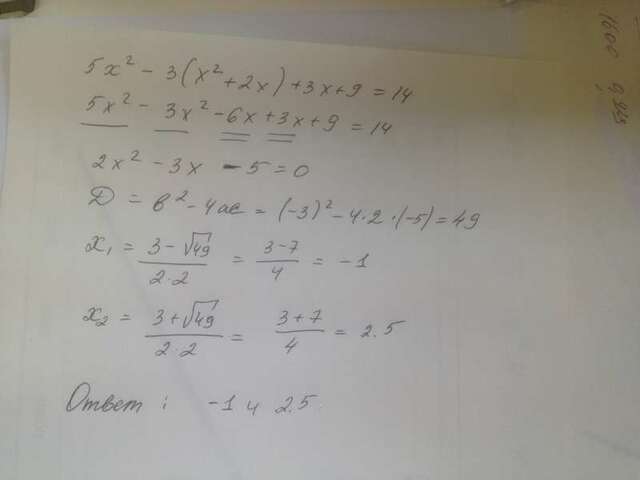 5x² - 3(x² + 2x) + 3x + 9 = 14
5x² - 3x² - 6x + 3x + 9 = 14
2x² - 3x - 5 = 0
D = в² - 4ac = (-3)² - 4·2·(-5) = 49
x₁ = (3 - √49)/(2·2) = (3 - 7)/4 = -1
x₂ = (3 + √49)/(2·2) = (3 + 7)/4 = 2.5
Ответ: -1 и 2.5